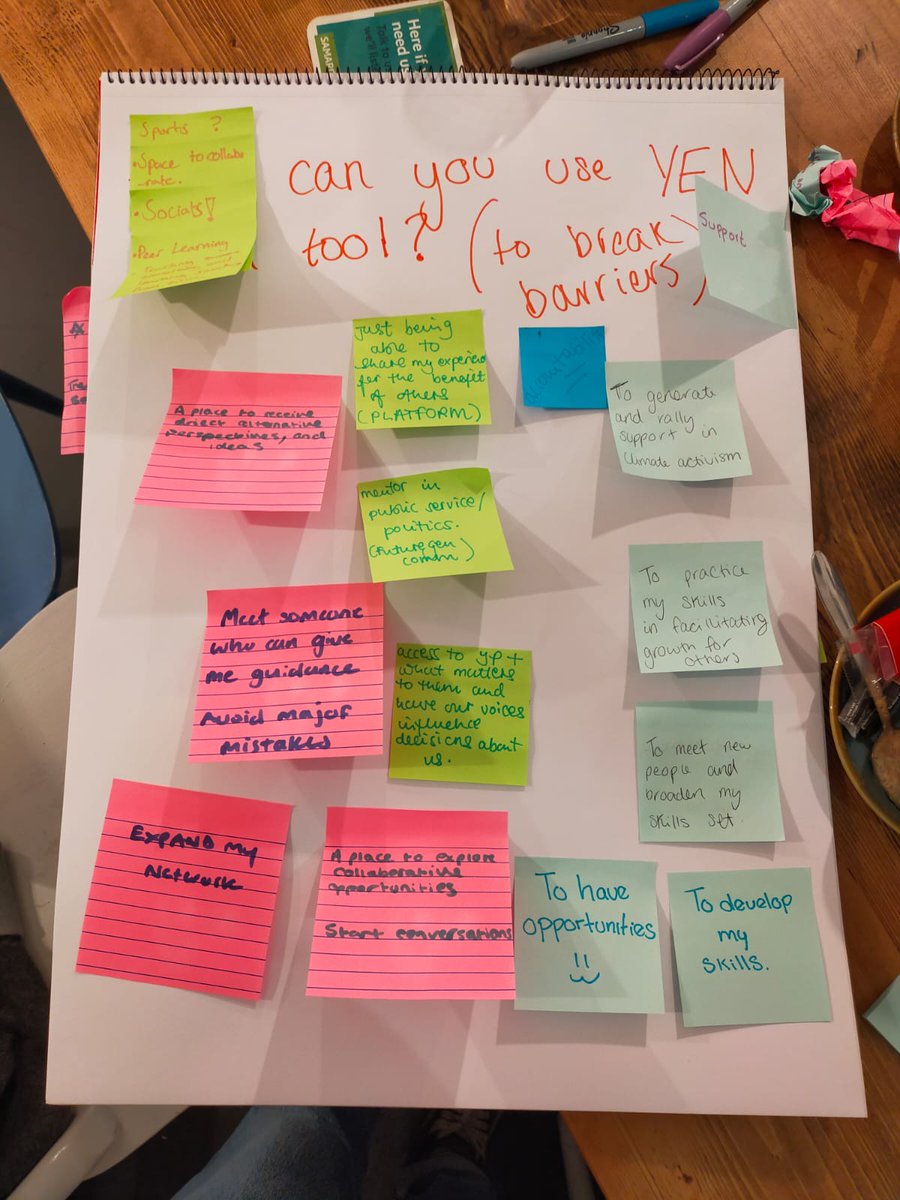 Here if
need us
Talk to us
we'll
SAMAR
Sharpie
Sports ?
•Space to collabo
-rate.
•Socials!
•Peer Learning
can you use YEN
tool? (to break
barriers)
Support
Just being
able to
share my experienc
for the benefit
of others
(PLATFORM)
To generate
and rally
support in
climate activism
A place to receive
direct alternative
perspectives, and
ideas
mentor in
public service/
politics.
(future gen
comm)
To practice
my skills
in facilitating
growth for
others
Meet someone
who can give
me guidance
Avoid major
mistakes
access to yp +
what matters
to them and
have our voices
influence
decisions about
us.
To meet new
people and
broaden my
skills set.
EXPAND my
Network
A place to explore
collaborative
opportunities
Start conversations
To have
opportunities
To develop
my
skills.